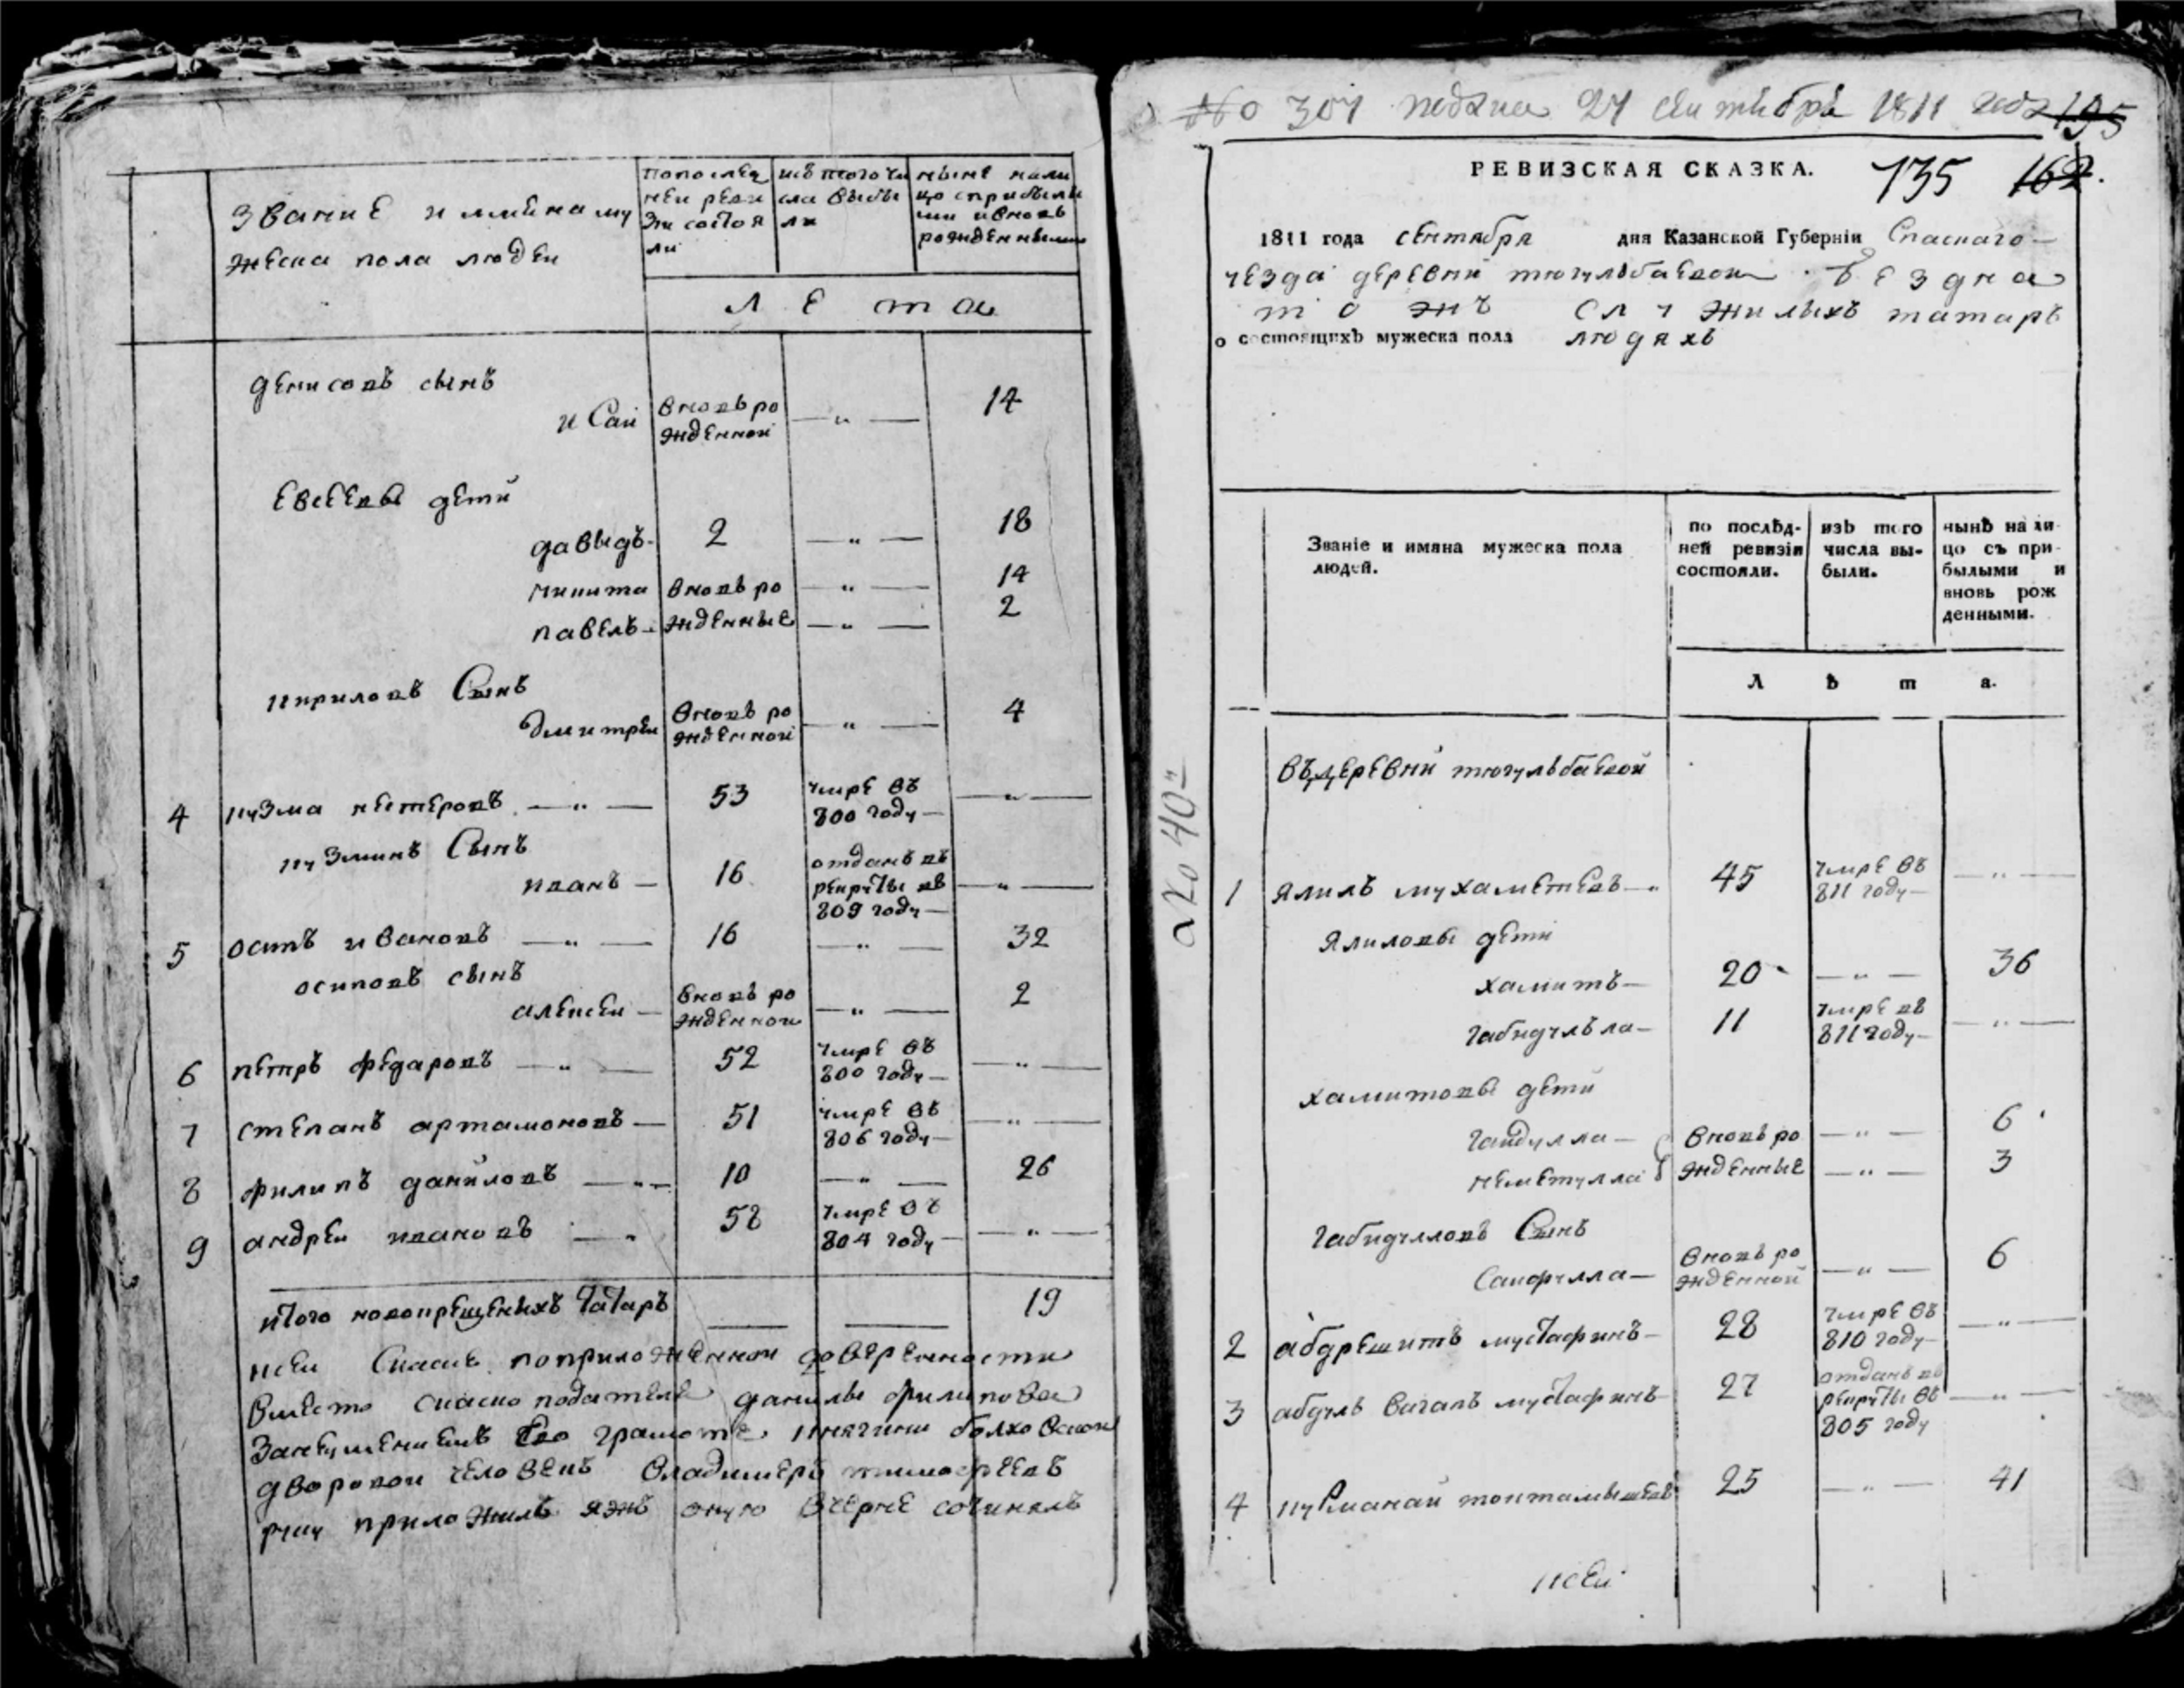 звание и имяна му
жеска пола людеи
попослед
неи реви
зи состоя
ли
исъ того чи
сла выбы
ли
ныне нали
цо сприбылы
ми ивновь
рожденными
Лета
денисовъ сынъ
исаи
вновь ро
жденнои
— „ —
14
евсеевы дети
давыдъ
2
— „ —
18
никита
вновь ро
— „ —
14
павелъ
жденные
— „ —
2
кириловъ сынъ
дмитреи
вновь ро
жденнои
— „ —
4
4
кузма нестеровъ — „ —
53
умре въ
800 году —
— „ —
кузминъ сынъ
иванъ —
16
отданъ въ
рекруты въ
809 году —
— „ —
5
осипъ ивановъ — „ —
16
— „ —
32
осиповъ сынъ
алексеи —
вновь ро
жденнои
— „ —
2
6
петръ федаровъ — „ —
52
умре въ
800 году —
— „ —
7
степанъ артамоновъ —
51
умре въ
806 году —
— „ —
8
филипъ даниловъ — „ —
10
— „ —
26
9
андреи ивановъ — „
58
умре въ
804 году —
— „ —
итого новокрещеныхъ татаръ
19
ксеи скаске поприложеннои доверенности
вместо скаско подателя данилы филипова
занеумениемъ его грамоте княгини болховскои
дворовои человекъ владимеръ тимофеевъ
руку приложилъ яжъ оную вчерне сочинялъ
№ 307 подана 27 сентября 1811 года
195
РЕВИЗСКАЯ СКАЗКА.
135 162.
1811 года сентября дня Казанской Губерніи Спаскаго —
уезда деревни тюгульбаевои бездна
тожъ служилыхъ татаръ
о состоящихъ мужеска пола людяхъ
Званіе и имяна мужеска пола
людей.
по послѣд-
ней ревизіи
состояли.
изъ того
числа вы-
были.
нынѣ на ли-
цо съ при-
былыми и
вновь рож
денными.
Лѣта.
въ деревни тюгульбаевой
1
ялилъ мухаметевъ — „
45
умре въ
811 году —
— „ —
ялиловы дети
хамитъ —
20
— „ —
36
габидулъла —
11
умре въ
811 году —
— „ —
хамитовы дети
гаидулла —
вновь ро
— „ —
6
неметулла
жденные
— „ —
3
габидулловъ сынъ
саифулла —
вновь ро
жденной
— „ —
6
2
абдрешитъ мустафинъ —
28
умре въ
810 году —
— „ —
3
абдулъ вагапъ мустафинъ
27
отданъ въ
рекруты въ
805 году
— „ —
4
курманаи тохтамышевъ
25
— „ —
41
ксеи